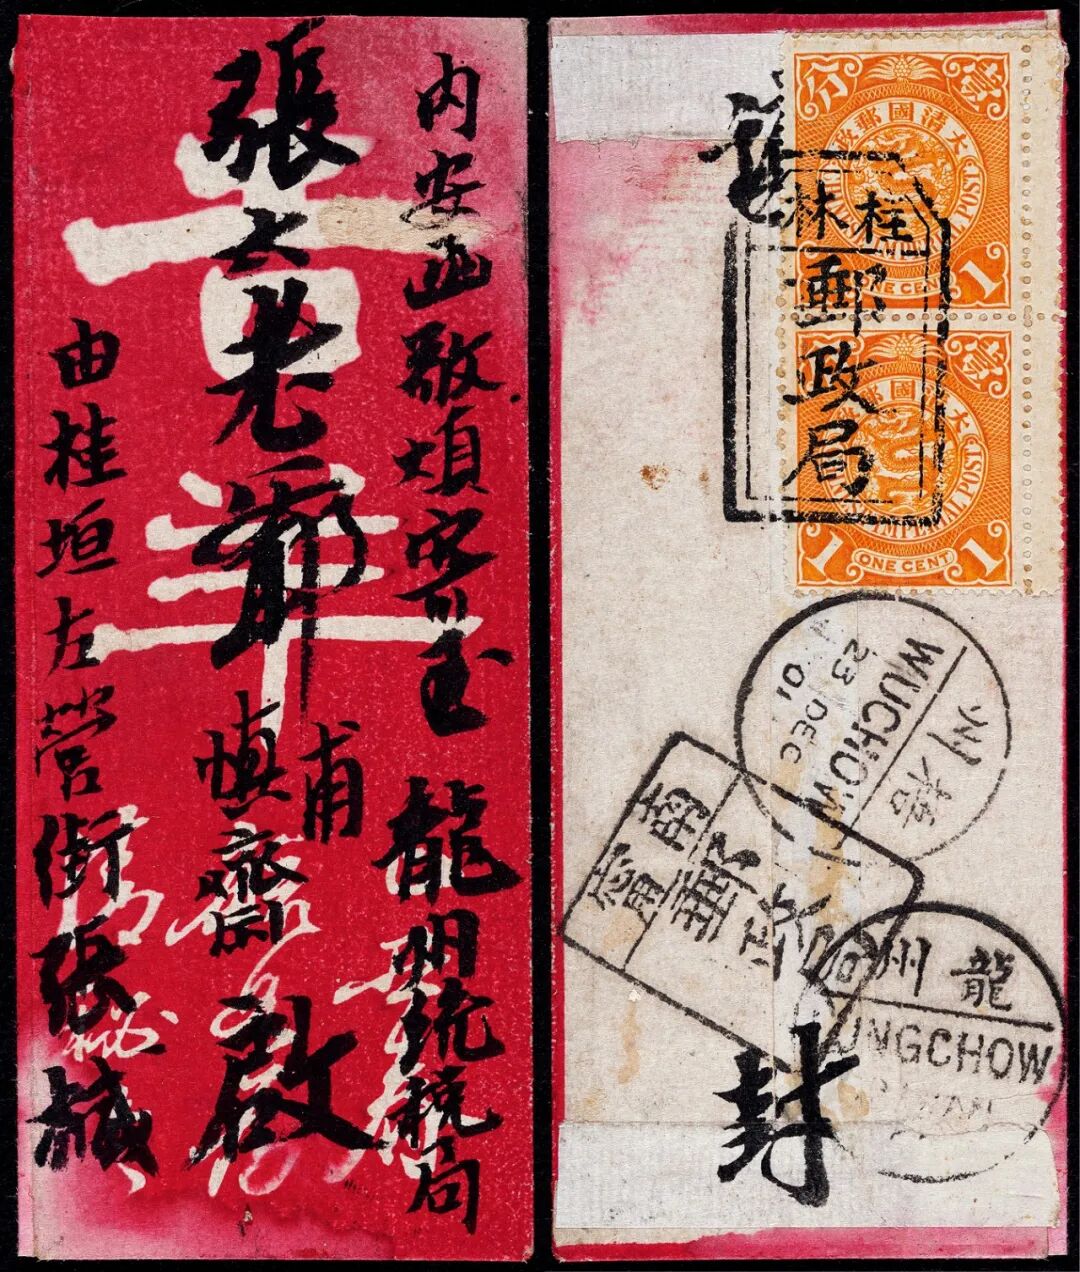 內安函敬煩寄至 龍州統稅局
張大老爺
慎齋
甫
啟
由桂垣左營街張緘
吉羊
封
壹分
大清國郵政
IMPERIAL POST
ONE CENT
1
壹分
大清國郵政
IMPERIAL POST
1 ONE CENT 1
桂林
郵政局
梧州
WUCHOW
23 DEC
01
南寧
郵政局
龍州
LUNGCHOW
JAN